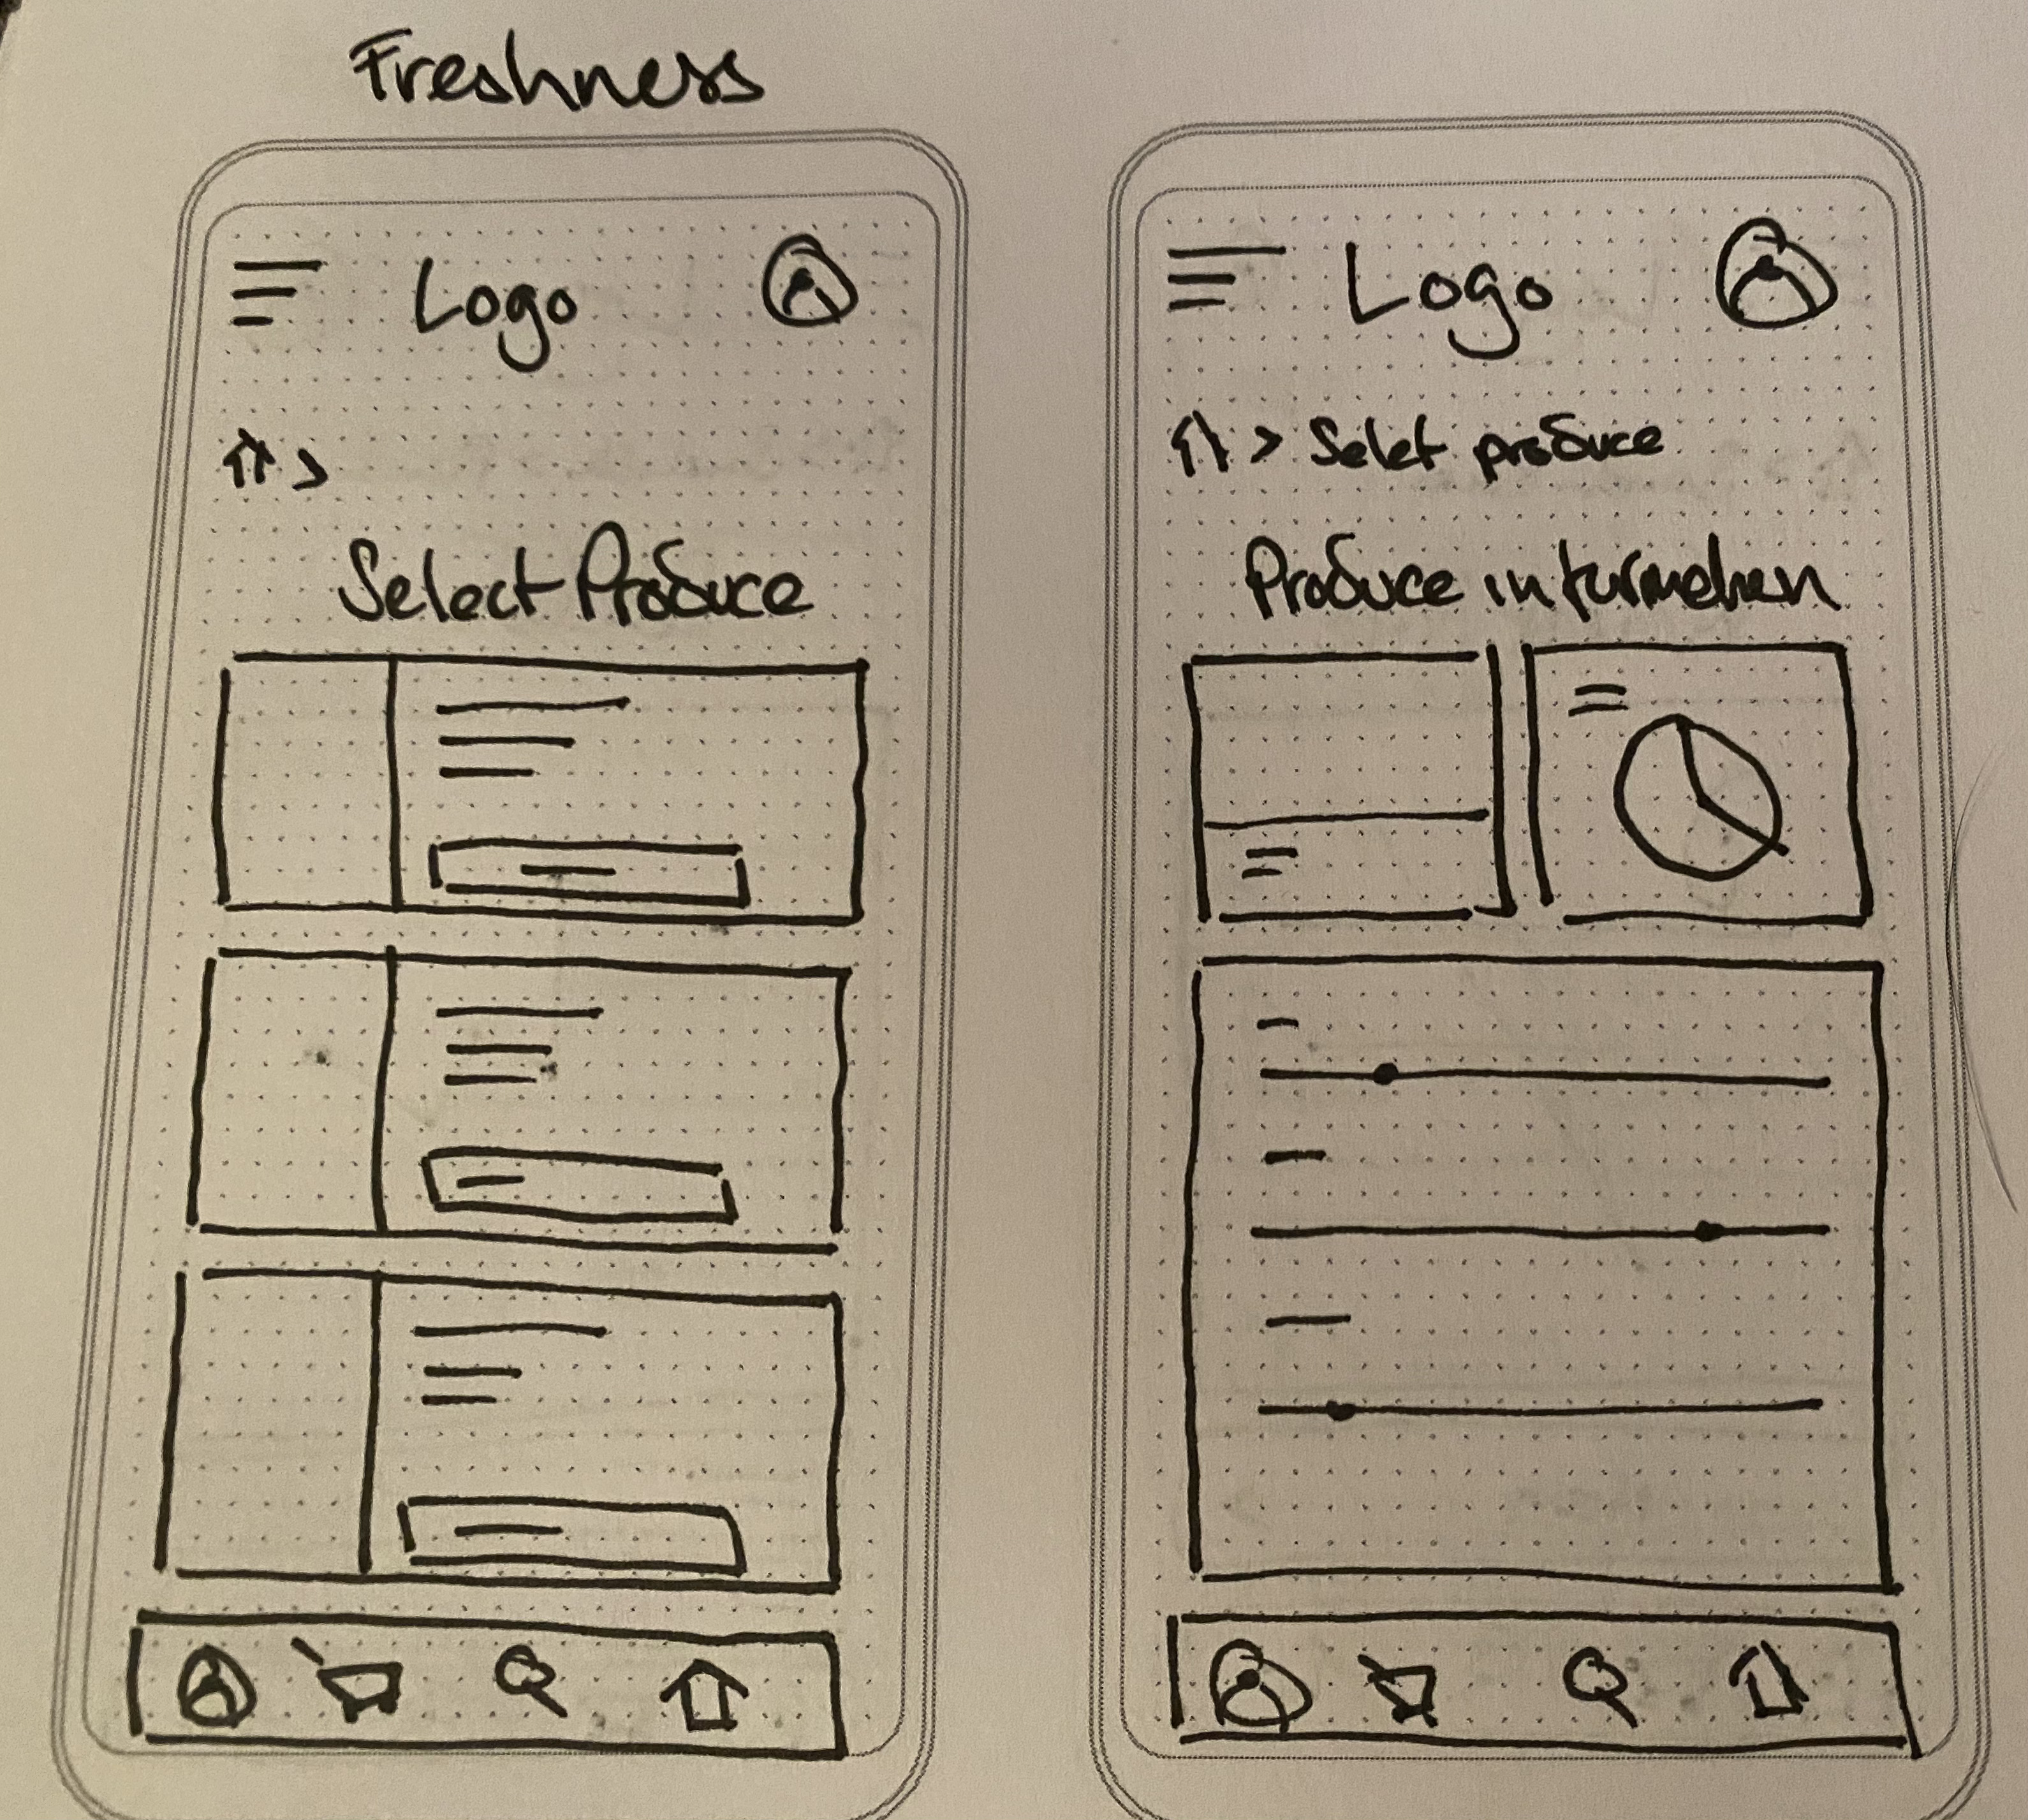 Freshness
Logo
>
Select Produce
Logo
> Selet produce
Produce information